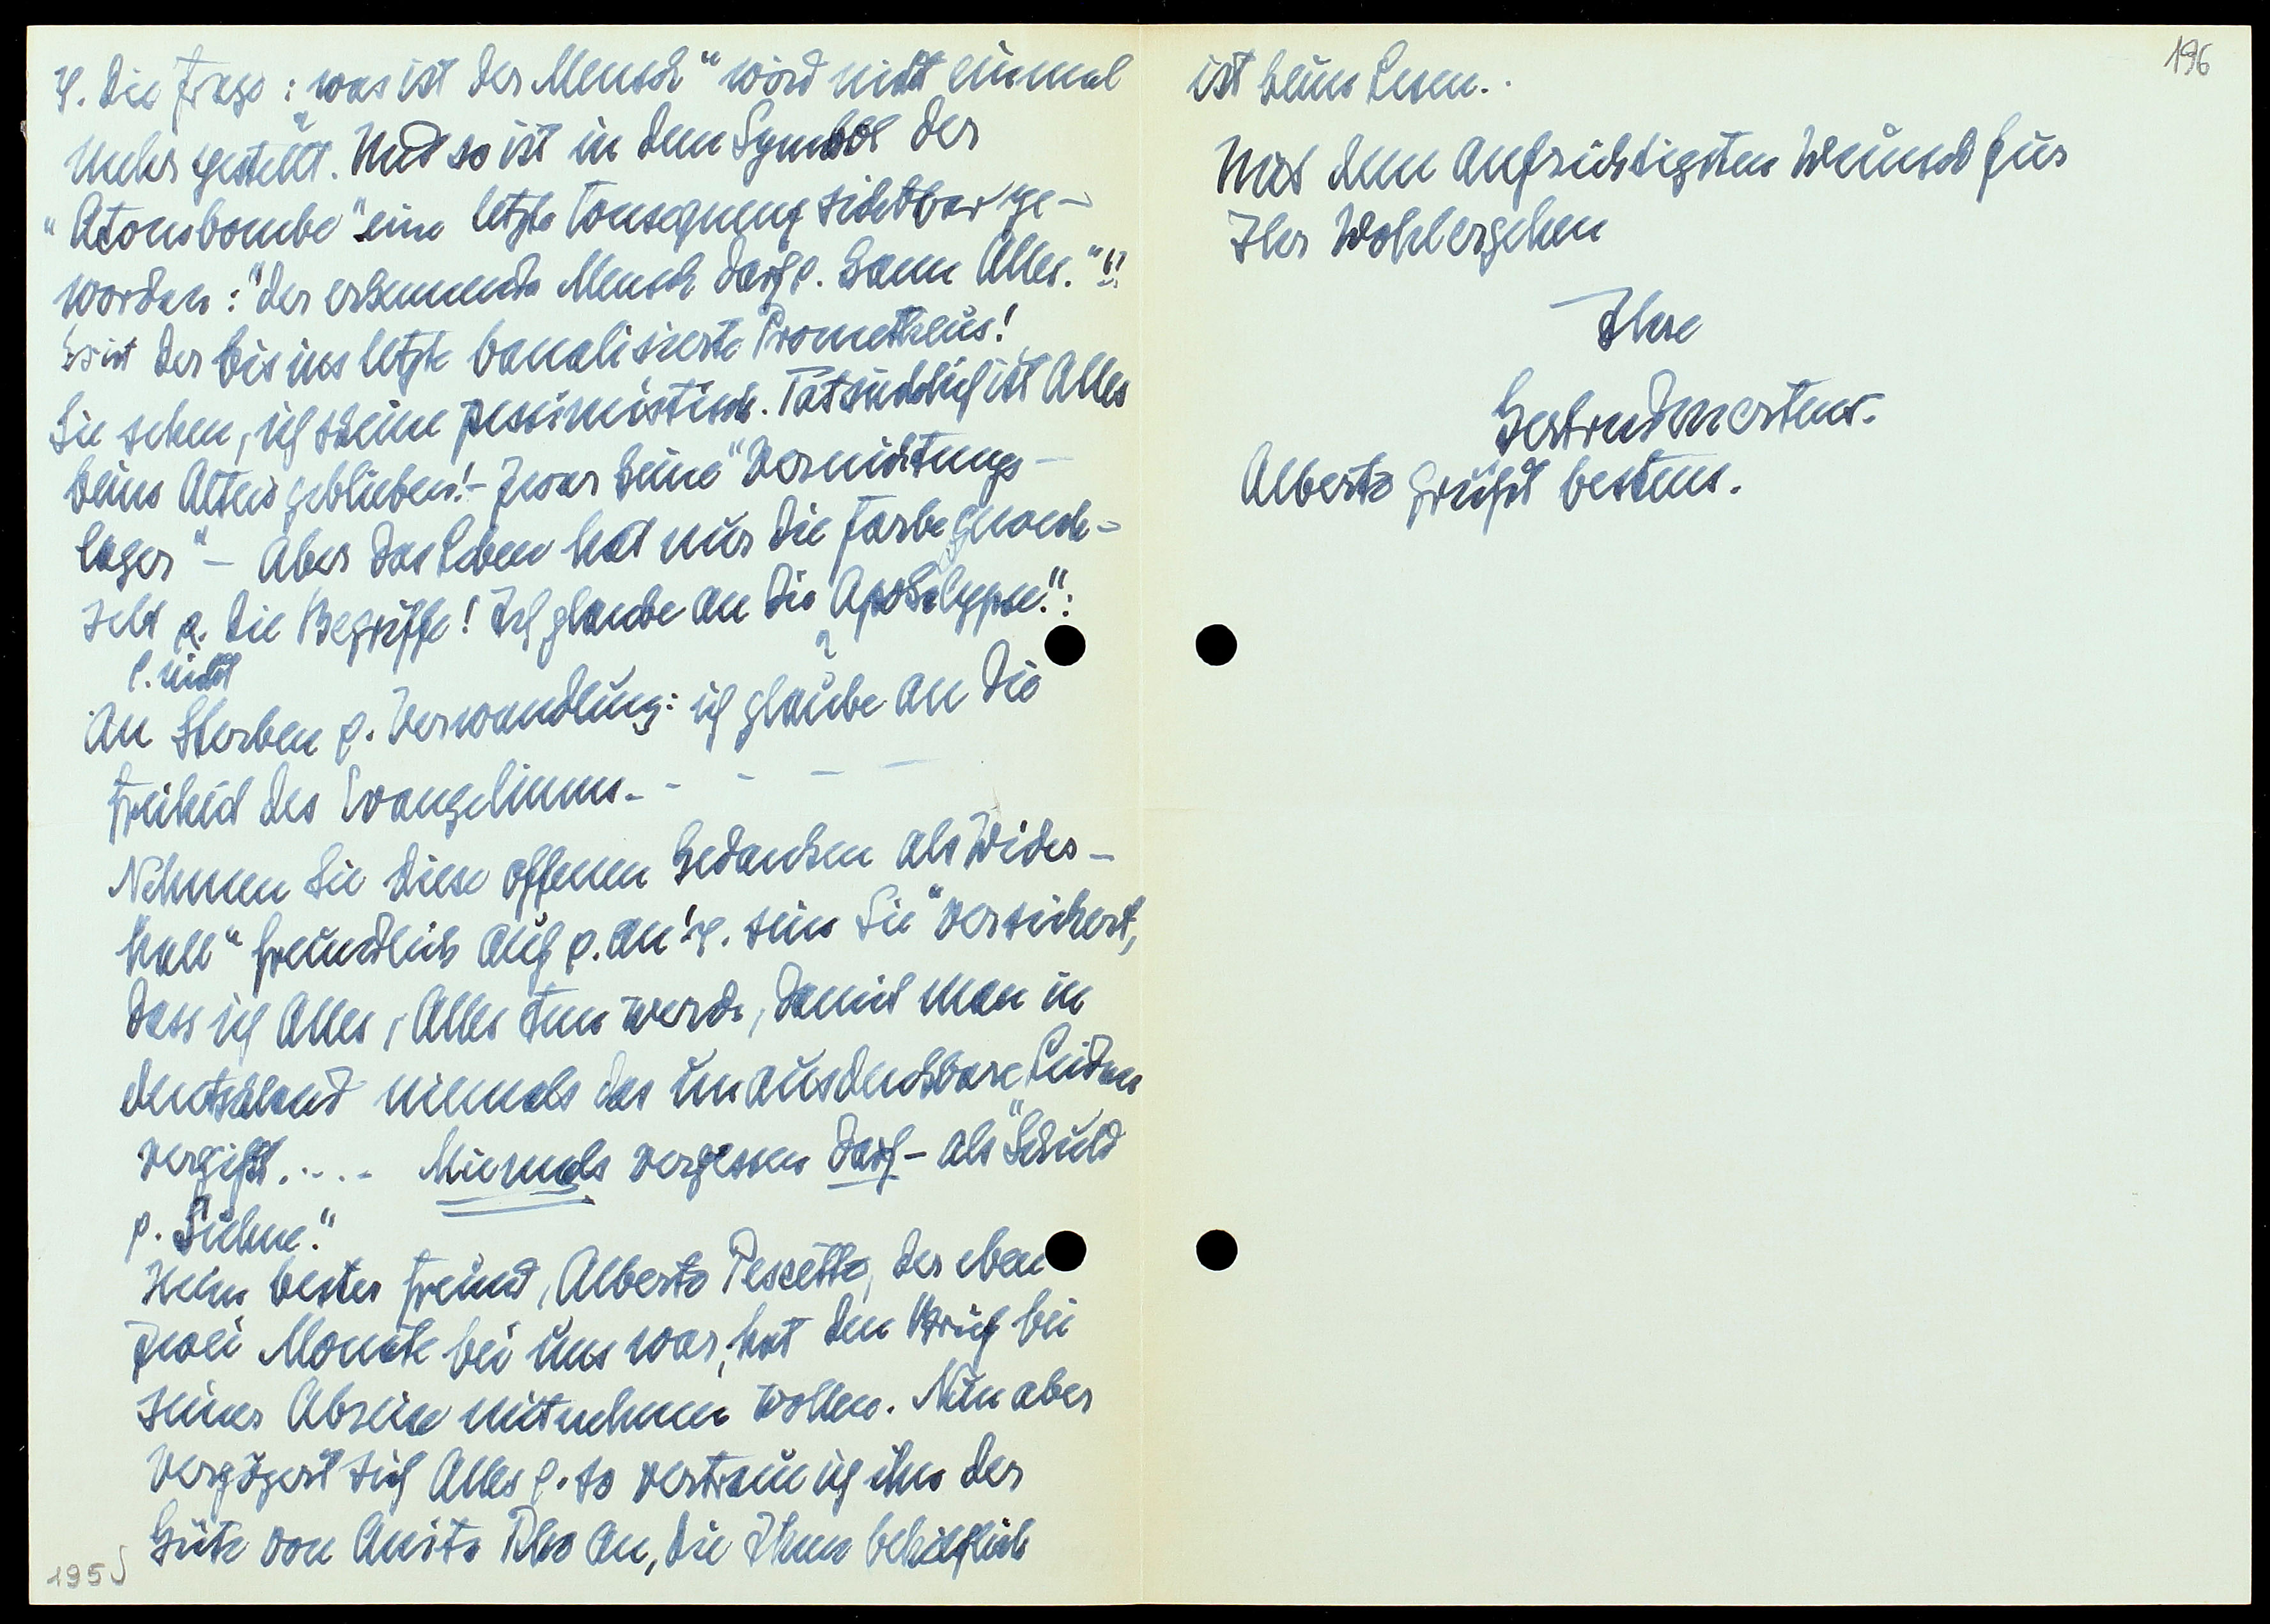 u. die Frage: „was ist der Mensch“ wird nicht einmal
mehr gestellt. Und so ist in dem Symbol der
"Atombombe" eine letzte Consequenz sichtbar ge-
worden: "der erkennende Mensch darf u. kann Alles."!!
Es ist der bis ins letzte banalisierte Prometheus!
Sie sehen, ich scheine pessimistisch. Tatsächlich ist Alles
beim Alten geblieben! - Zwar keine "Vernichtungs-
lager" - Aber das Leben hat nur die Farbe gewech-
selt u. die Begriffe! Ich glaube an die "Apokalypse":
u. nicht
an Sterben u. Verwandlung: ich glaube an die
Freiheit des Evangeliums. - - - -
Nehmen Sie diese offenen Gedanken als "Wider-
hall" freundlich auf u. an! u. sein Sie versichert,
dass ich Alles, Alles tun werde, damit man in
Deutschland niemals das unausdenkbare Leiden
vergißt. . . . - Niemals vergessen darf - als "Schuld
u. Sühne."
Mein bester Freund, Alberto Pescetto, der eben
zwei Monate bei uns war, hat den Brief bei
seiner Abreise mitnehmen wollen. Nun aber
verzögert sich Alles u. so vertraue ich ihn der
Güte von Anita Rho an, die Ihnen behilflich
195
196
ist beim Lesen..
Mit dem aufrichtigsten Wunsch für
Ihr Wohlergehen
Ihre
Gertrud Mertens.
Alberto grüßt bestens.